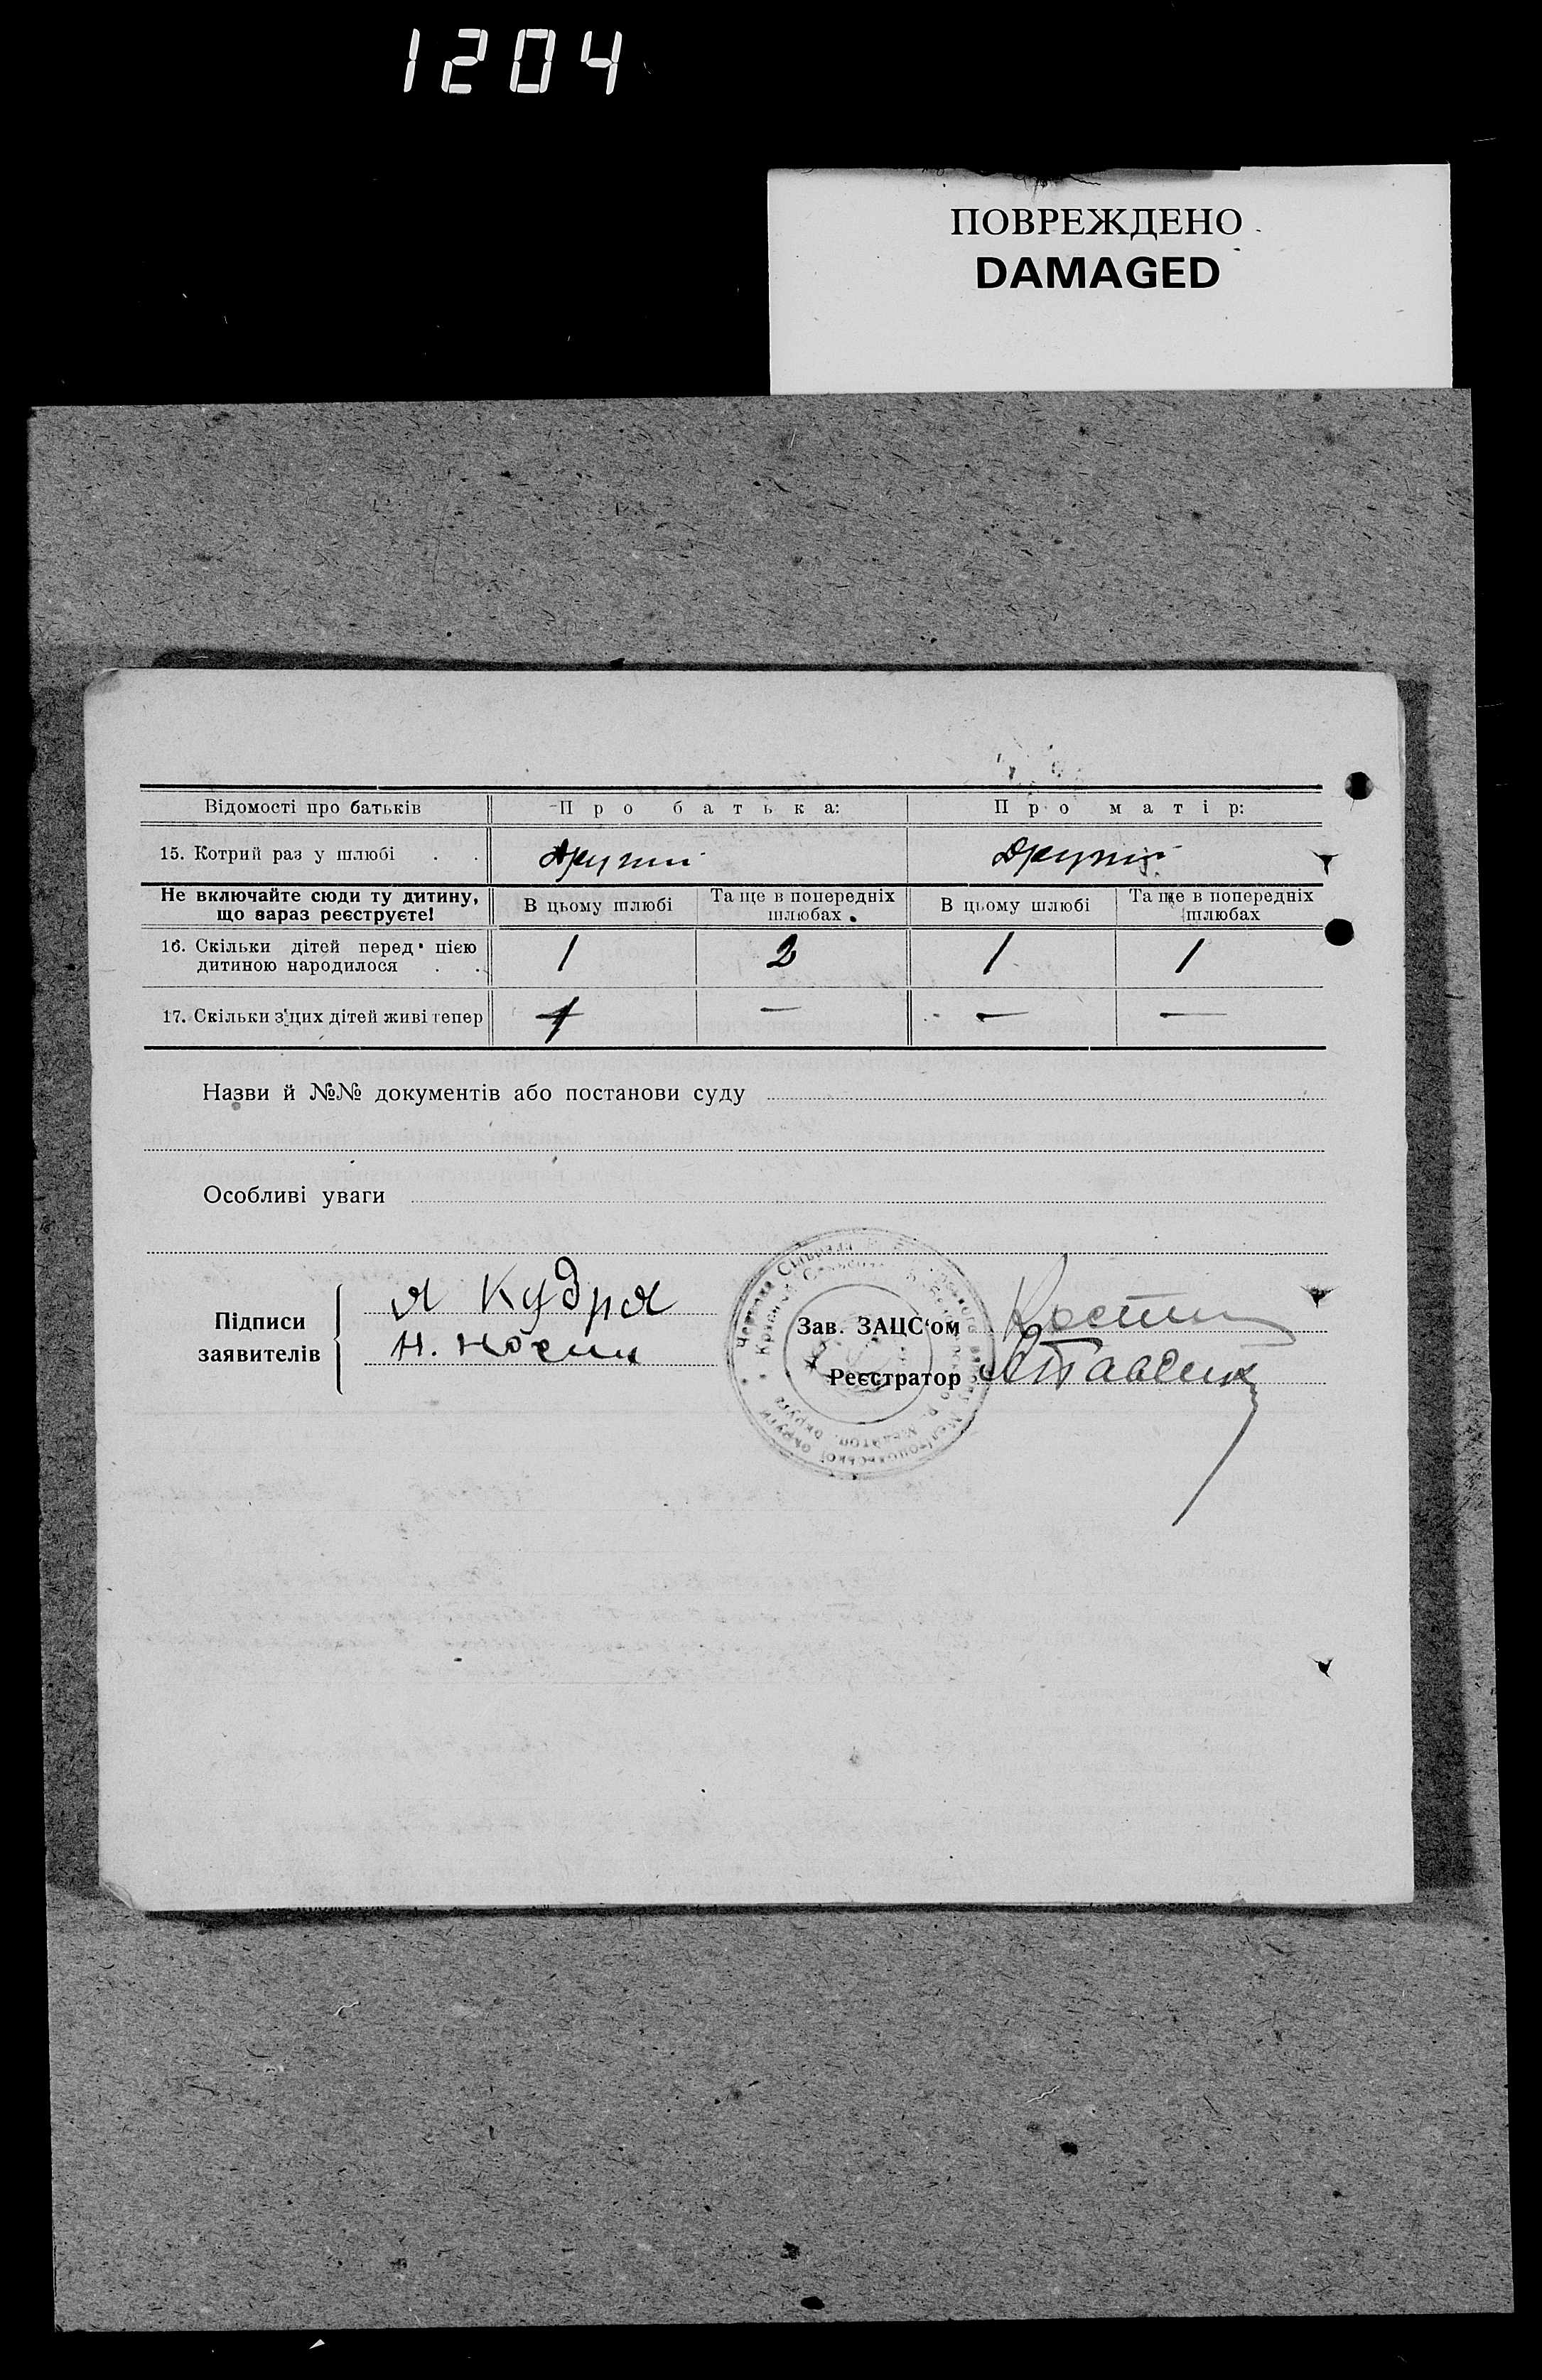 1204
ПОВРЕЖДЕНО
DAMAGED
Відомості про батьків Про батька: Про матір:
15. Котрий раз у шлюбі . . другий другий
Не включайте сюди ту дитину, що зараз реєструєте! В цьому шлюбі Та ще в попередніх шлюбах В цьому шлюбі Та ще в попередніх шлюбах
16. Скільки дітей перед цією
дитиною народилося . . 1 2 1 1
17. Скільки з'цих дітей живі тепер 1 — — —
Назви й №№ документів або постанови суду
Особливі уваги
Підписи
заявителів
я Кудря
Н. Носик
Зав. ЗАЦС'ом
Реєстратор
Червона Мелітопольської округи
округа